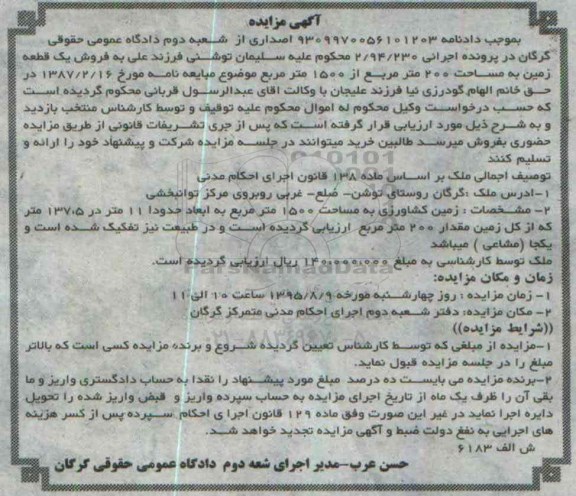 آگهی مزایده
بموجب دادنامه 9309970056101203 اصداری از شعبه دوم دادگاه عمومی حقوقی
گرگان در پرونده اجرائی 2/94/230 محکوم علیه سلیمان توشنی فرزند علی به فروش یک قطعه
زمین به مساحت 200 متر مربع از 1500 متر مربع موضوع مبایعه نامه مورخ 1387/2/16 در
حق خانم الهام گودرزی نیا فرزند علیجان با وکالت اقای عبدالرسول قربانی محکوم گردیده است
که حسب درخواست وکیل محکوم له اموال محکوم علیه توقیف و توسط کارشناس منتخب بازدید
و به شرح ذیل مورد ارزیابی قرار گرفته است که پس از جری تشریفات قانونی از طریق مزایده
حضوری بفروش میرسد طالبین خرید میتوانند در جلسه مزایده شرکت و پیشنهاد خود را ارائه و
تسلیم کنند
توصیف اجمالی ملک بر اساس ماده 138 قانون اجرای احکام مدنی
1-ادرس ملک :گرگان روستای توشن- ضلع- غربی روبروی مرکز توانبخشی
2- مشخصات : زمین کشاورزی به مساحت 1500 متر مربع به ابعاد حدودا 11 متر در 137،5 متر
که از کل زمین مقدار 200 متر مربع ارزیابی گردیده است و در طبیعت نیز تفکیک شده است و
یکجا (مشاعی ) میباشد
ملک توسط کارشناسی به مبلغ 140،000،000 ریال ارزیابی گردیده است.
زمان و مکان مزایده:
1- زمان مزایده : روز چهارشنبه مورخه 1395/8/9 ساعت 10 الی 11
2- مکان مزایده: دفتر شعبه دوم اجرای احکام مدنی متمرکز گرگان
((شرایط مزایده))
1-مزایده از مبلغی که توسط کارشناس تعیین گردیده شروع و برنده مزایده کسی است که بالاتر
مبلغ را در جلسه مزایده قبول نماید.
2-برنده مزایده می بایست ده درصد مبلغ مورد پیشنهاد را نقدا به حساب دادگستری واریز و ما
بقی آن را ظرف یک ماه از تاریخ اجرای مزایده به حساب سپرده واریز و قبض واریز شده را تحویل
دایره اجرا نماید در غیر این صورت وفق ماده 129 قانون اجرا ی احکام سپرده پس از کسر هزینه
های اجرایی به نفغ دولت ضبط و آگهی مزایده تجدید خواهد شد.
ش الف 6183
حسن عرب-مدیر اجرای شعه دوم دادگاه عمومی حقوقی گرگان